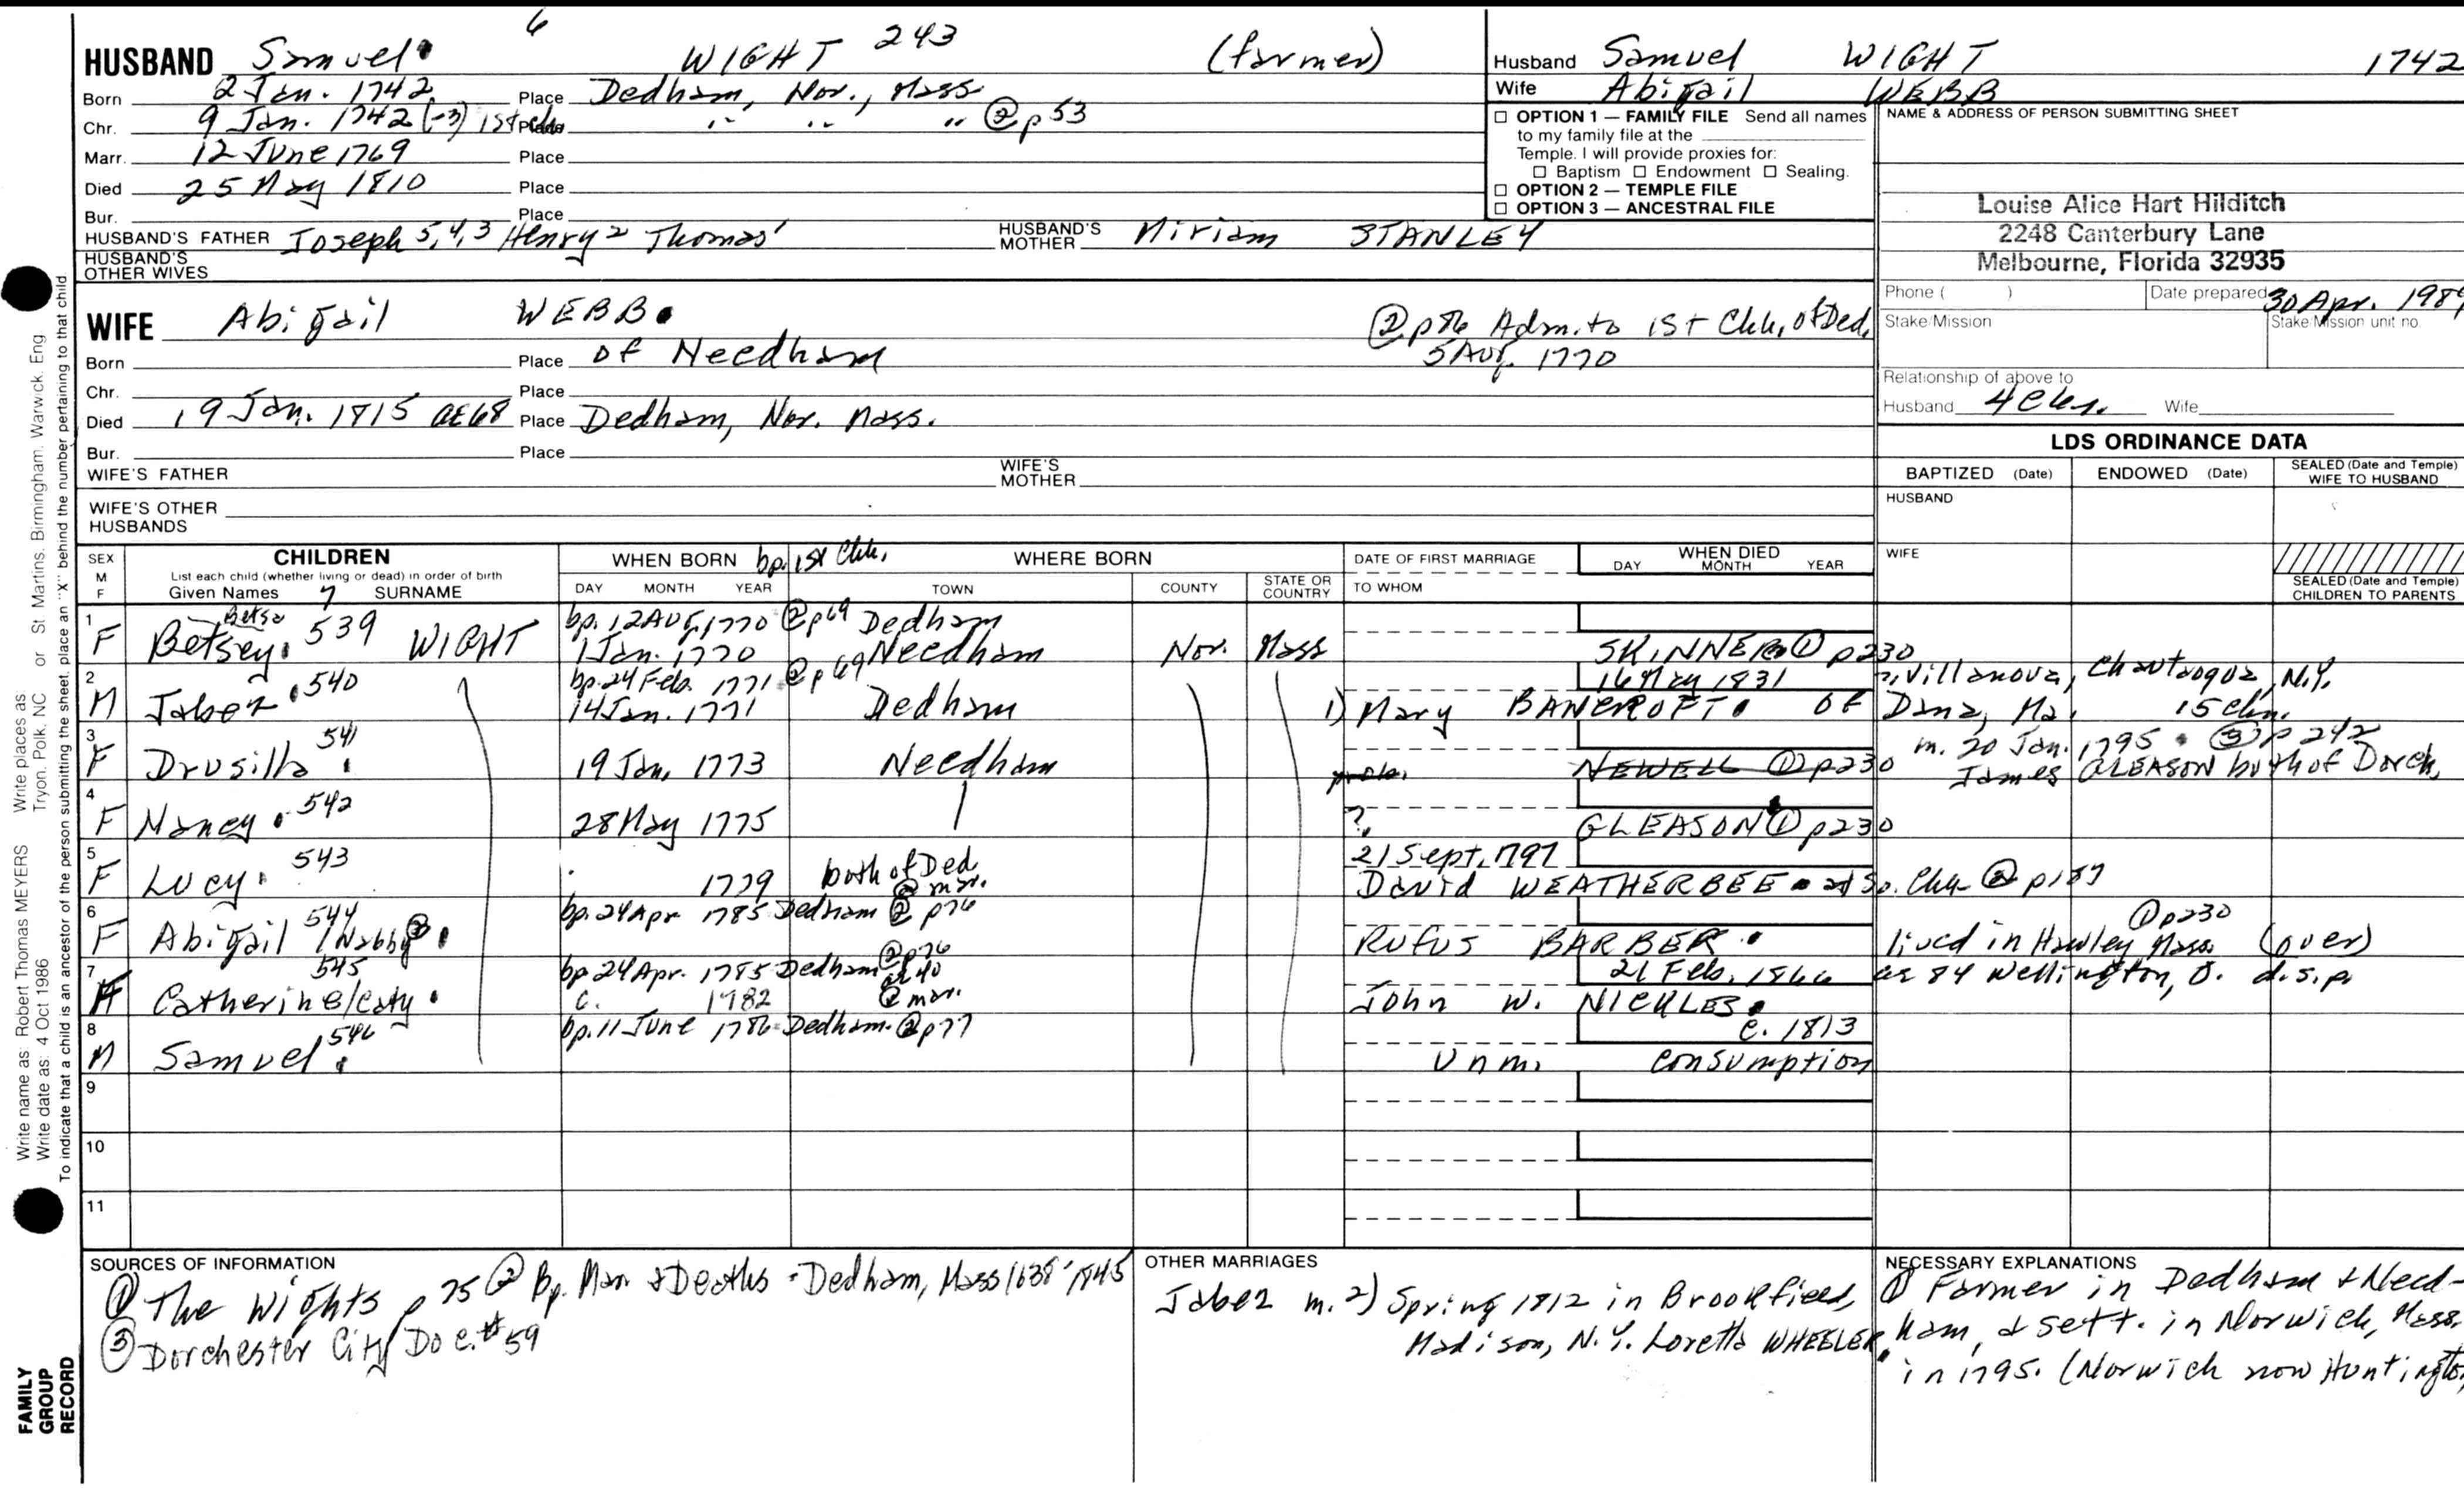 6
HUSBAND Samuel WIGHT 243 (farmer)
Born 2 Jan. 1742 Place Dedham, Nor., Mass
Chr. 9 Jan. 1742 (-3) 1st Chh Place " " " @ p53
Marr. 12 June 1769 Place
Died 25 May 1810 Place
Bur. Place
HUSBAND'S FATHER Joseph 5,4,3 Henry 2 Thomas 1 HUSBAND'S MOTHER Miriam STANLEY
HUSBAND'S OTHER WIVES
Husband Samuel WIGHT 1742
Wife Abigail WEBB
☐ OPTION 1 — FAMILY FILE Send all names
to my family file at the
Temple. I will provide proxies for:
☐ Baptism ☐ Endowment ☐ Sealing.
☐ OPTION 2 — TEMPLE FILE
☐ OPTION 3 — ANCESTRAL FILE
NAME & ADDRESS OF PERSON SUBMITTING SHEET
Louise Alice Hart Hilditch
2248 Canterbury Lane
Melbourne, Florida 32935
Phone ( ) Date prepared 30 Apr. 198
Stake/Mission Stake/Mission unit no.
Relationship of above to
Husband 4 Wife
WIFE Abigail WEBB
② p76 Adm. to 1st Chh, of Ded.
5 Aug. 1770
Born Place of Needham
Chr. Place
Died 19 Jan. 1815 AE 68 Place Dedham, Nor. Mass.
Bur. Place
WIFE'S FATHER WIFE'S MOTHER
WIFE'S OTHER HUSBANDS
LDS ORDINANCE DATA
BAPTIZED (Date) ENDOWED (Date) SEALED (Date and Temple) WIFE TO HUSBAND
HUSBAND
WIFE
SEALED (Date and Temple) CHILDREN TO PARENTS
SEX M F
CHILDREN
List each child (whether living or dead) in order of birth
Given Names 7 SURNAME
WHEN BORN bp. 1st Chh. WHERE BORN
DAY MONTH YEAR TOWN COUNTY STATE OR COUNTRY
DATE OF FIRST MARRIAGE
TO WHOM
WHEN DIED
DAY MONTH YEAR
1 Betse bp. 12 Aug 1770 @ p69 Dedham
F Betsey 539 WIGHT 1 Jan. 1770 Needham Nor. Mass SKINNER ① p230
2 bp. 24 Feb. 1771 @ p69 16 May 1831 Villanova, Chautaoqua, N.Y.
M Jabez 540 14 Jan. 1771 Dedham 1) Mary BANCROFT of Dana, Ma. 15 chn.
3 m. 20 Jan. 1795 ③ p 242
F Drusilla 541 19 Jan. 1773 Needham prob. NEWELL ① p230 James GLEASON both of Dorch.
4
F Nancy 542 28 May 1775 ? GLEASON ① p230
5 21 Sept. 1797
F Lucy 543 1779 both of Ded @ mar. David WEATHERBEE 2d So. Chh ② p187
6 bp. 24 Apr 1785 Dedham @ p76
F Abigail /Nabby 544 Rufus BARBER ① p230 lived in Hawley Mass (over)
7 bp. 24 Apr. 1785 Dedham @ p76 21 Feb. 1866 ae 84 Wellington, O. d.s.p.
F Catherine/Caty 545 c. 1782 ae 40 @ mar. John W. NICKLES
8 bp. 11 June 1786 Dedham. @ p77 c. 1813
M Samuel 546 Unm. consumption
9
10
11
SOURCES OF INFORMATION
① The Wights p 75 ② Bp. Mar & Deaths - Dedham, Mass 1638-1845
③ Dorchester City Doc. #59
OTHER MARRIAGES
Jabez m. 2) Spring 1812 in Brookfield,
Madison, N.Y. Loretta WHEELER
NECESSARY EXPLANATIONS
① Farmer in Dedham & Need-
ham, & sett. in Norwich, Mass.
in 1795. (Norwich now Huntington
Write name as: Robert Thomas MEYERS Write places as
Write date as: 4 Oct 1986 Tryon, Polk, NC or St Martins, Birmingham, Warwick, Eng
To indicate that a child is an ancestor of the person submitting the sheet, place an "X" behind the number pertaining to that child
FAMILY
GROUP
RECORD